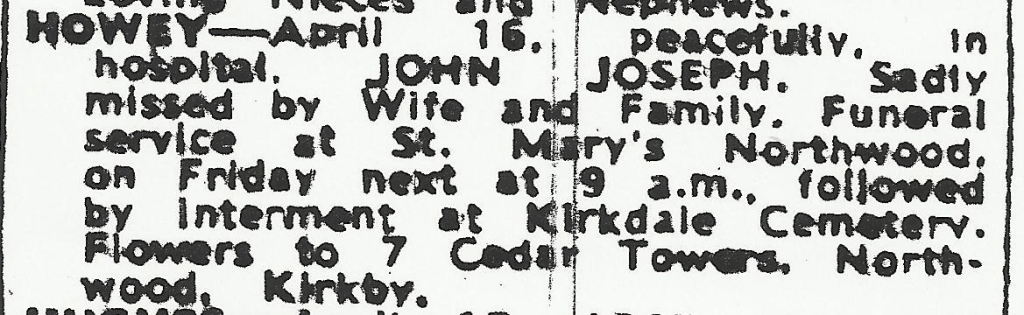 Loving Nieces and Nephews.
HOWEY—April 16, peacefully, in
hospital, JOHN JOSEPH. Sadly
missed by Wife and Family. Funeral
service at St. Mary's Northwood,
on Friday next at 9 a.m., followed
by interment at Kirkdale Cemetery.
Flowers to 7 Cedar Towers, North-
wood, Kirkby.